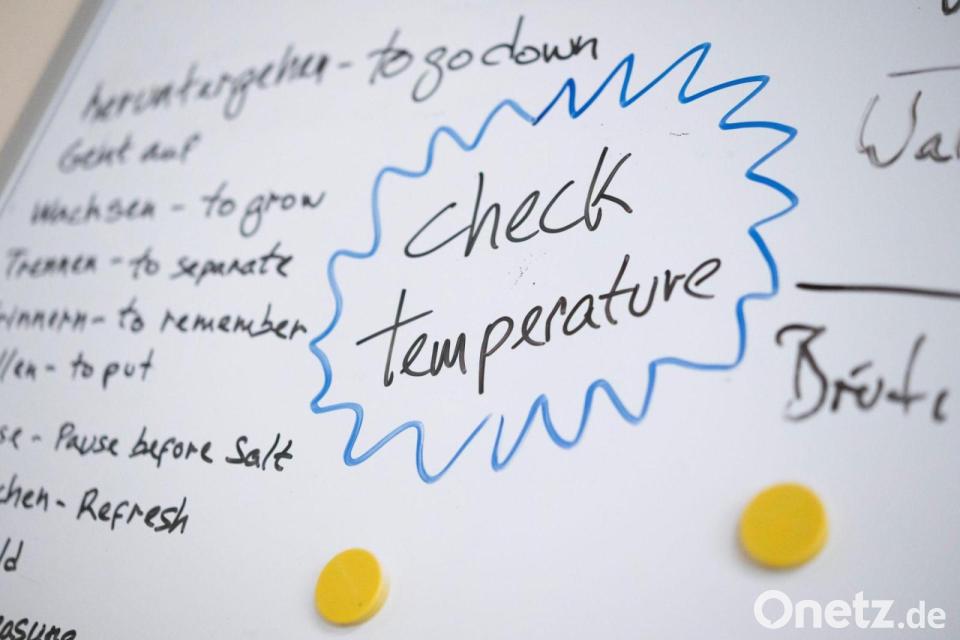 heruntergehen - to go down
Geht auf
Wachsen - to grow
Trennen - to separate
rinnern - to remember
llen - to put
se - Pause before Salt
chen - Refresh
ld
asung
check
temperature
Wal
Brüte
Onetz.de